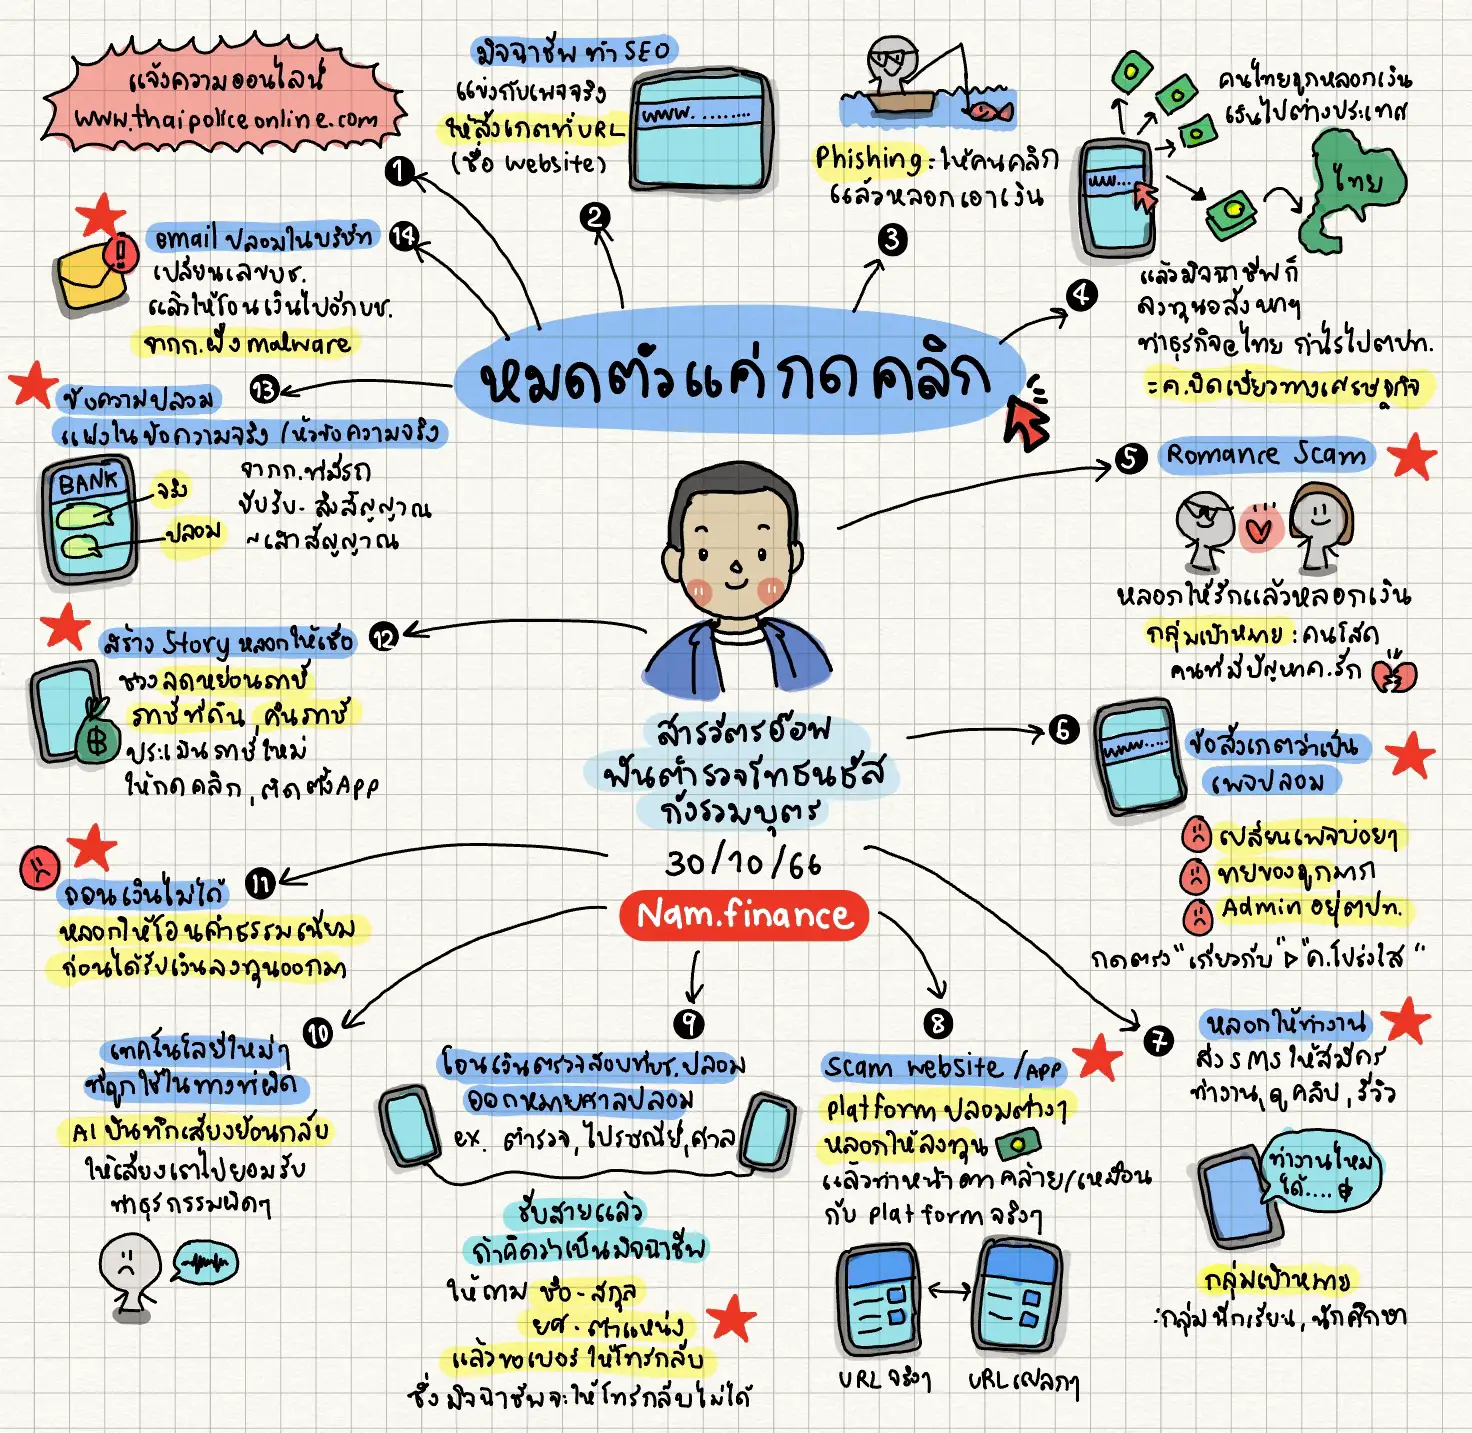 หมดตัวแค่กดคลิก
สารวัตรอ๊อฟ
พันตำรวจโทธนธัส
กังรวมบุตร
30/10/66
Nam.finance
1
แจ้งความออนไลน์
www.thaipoliceonline.com
2
มิจฉาชีพ ทำ SEO
แข่งกับเพจจริง
ให้สังเกตที่ URL
(ชื่อ website)
www.........
3
Phishing : ให้คนคลิก
แล้วหลอกเอาเงิน
4
คนไทยถูกหลอกเงิน
เงินไปต่างประเทศ
www...
ไทย
แล้วมิจฉาชีพก็
ลงทุนอสังหาฯ
ทำธุรกิจ@ไทย กำไรไปตปท.
= ค.บิดเบี้ยวทางเศรษฐกิจ
5
Romance Scam
หลอกให้รักแล้วหลอกเงิน
กลุ่มเป้าหมาย : คนโสด
คนที่มีปัญหาค.รัก
6
www.....
ข้อสังเกตว่าเป็น
เพจปลอม
เปลี่ยนเพจบ่อยๆ
ขายของถูกมาก
Admin อยู่ตปท.
กดตรง "เกี่ยวกับ" ▷ "ค.โปร่งใส"
7
หลอกให้ทำงาน
ส่ง SMS ให้สมัคร
ทำงาน, ดูคลิป, รีวิว
ทำงานไหม
ได้.... ฿
กลุ่มเป้าหมาย
: กลุ่มนักเรียน, นักศึกษา
8
Scam website /APP
Platform ปลอมต่างๆ
หลอกให้ลงทุน
แล้วทำหน้าตาคล้าย/เหมือน
กับ Platform จริงๆ
URL จริงๆ
URL แปลกๆ
9
โอนเงินตรวจสอบที่บช.ปลอม
ออกหมายศาลปลอม
ex. ตำรวจ, ไปรษณีย์, ศาล
รับสายแล้ว
ถ้าคิดว่าเป็นมิจฉาชีพ
ให้ถาม ชื่อ - สกุล
ยศ - ตำแหน่ง
แล้วขอเบอร์ให้โทรกลับ
ซึ่งมิจฉาชีพจะให้โทรกลับไม่ได้
10
เทคโนโลยีใหม่ๆ
ที่ถูกใช้ในทางที่ผิด
AI บันทึกเสียงย้อนกลับ
ให้เสียงเราไปยอมรับ
ทำธุรกรรมผิดๆ
11
ถอนเงินไม่ได้
หลอกให้โอนค่าธรรมเนียม
ก่อนได้รับเงินลงทุนออกมา
12
สร้าง Story หลอกให้เชื่อ
ช่วงลดหย่อนภาษี
ภาษีที่ดิน, คืนภาษี
ประเมินภาษีใหม่
ให้กดคลิก, ติดตั้ง App
฿
13
ข้อความปลอม
แฝงในข้อความจริง /หัวข้อความจริง
BANK
จริง
ปลอม
จากก.ที่มีรถ
ขับรับ - ส่งสัญญาณ
~เสาสัญญาณ
14
email ปลอมในบริษัท
เปลี่ยนเลขบช.
แล้วให้โอนเงินไปอีกบช.
จากก.ฝัง malware